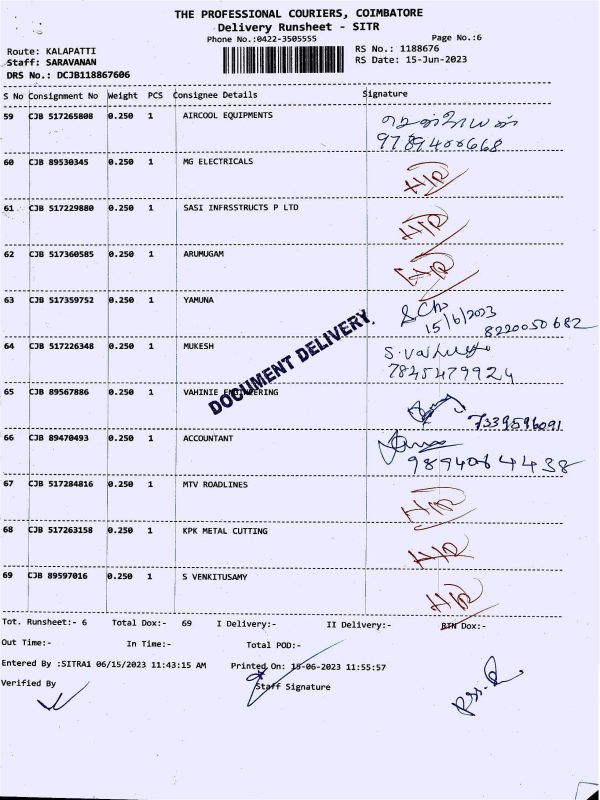 THE PROFESSIONAL COURIERS, COIMBATORE
Delivery Runsheet - SITR
Phone No.:0422-3505555
Page No.:6
Route: KALAPATTI
RS No.: 1188676
Staff: SARAVANAN
RS Date: 15-Jun-2023
DRS No.: DCJB118867606
S No Consignment No Weight PCS Consignee Details Signature
59 CJB 517265808 0.250 1 AIRCOOL EQUIPMENTS
9789400668
60 CJB 89530345 0.250 1 MG ELECTRICALS H/R
61 CJB 517229880 0.250 1 SASI INFRSSTRUCTS P LTD H/R
62 CJB 517360585 0.250 1 ARUMUGAM H/R
63 CJB 517359752 0.250 1 YAMUNA
15/6/2023
8220050682
DOCUMENT DELIVERY.
64 CJB 517226348 0.250 1 MUKESH
7845479924
65 CJB 89567886 0.250 1 VAHINIE ENGINEERING
7339596091
66 CJB 89470493 0.250 1 ACCOUNTANT
9894064438
67 CJB 517284816 0.250 1 MTV ROADLINES H/R
68 CJB 517263158 0.250 1 KPK METAL CUTTING H/R
69 CJB 89597016 0.250 1 S VENKITUSAMY H/R
Tot. Runsheet:- 6 Total Dox:- 69 I Delivery:- II Delivery:- RTN Dox:-
Out Time:- In Time:- Total POD:-
Entered By :SITRA1 06/15/2023 11:43:15 AM Printed On: 15-06-2023 11:55:57
Verified By Staff Signature